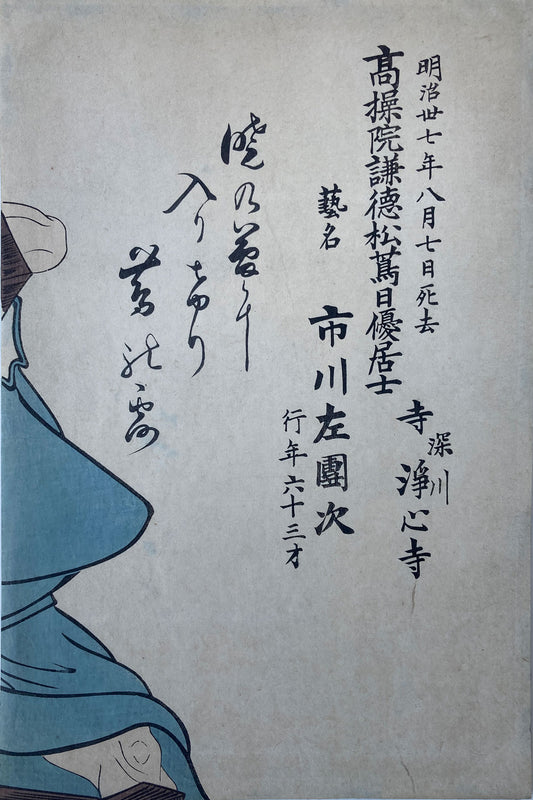 明治丗七年八月七日死去
高操院謙德松蔦日優居士
寺 深川 淨心寺
藝名 市川左團次
行年六十三才
暁の
入り
蓮の露